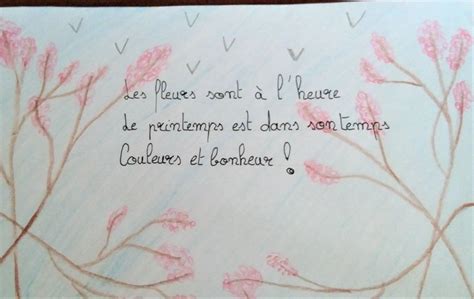 Les fleurs sont à l'heure
Le printemps est dans son temps
Couleurs et bonheur !